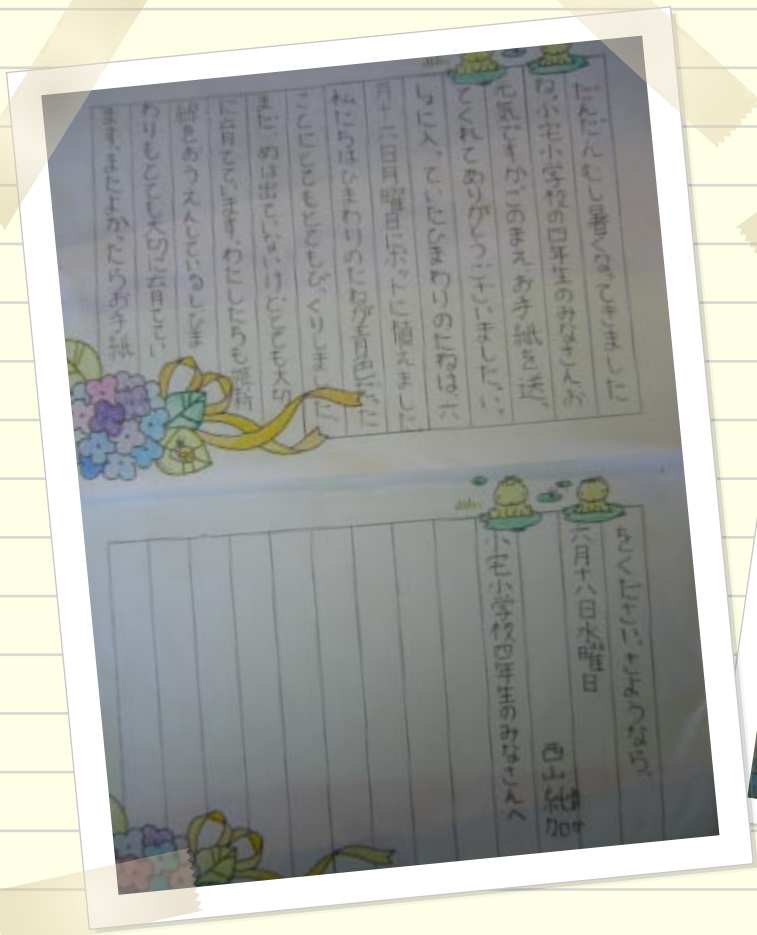 だんだんむし暑くなってきました
ね。小宅小学校の四年生のみなさんお
元気ですかこのまえ、お手紙を送っ
てくれてありがとうございました。い
しょに入っていたひまわりのたねは、六
月十六日月曜日にポットに植えました
私たちはひまわりのたねが青色だった
ことにとてもとてもびっくりしました
まだ、めは出ていないけどとても大切
に育てています。わたしたちも
をおうえんしているしひま
わりもとても大切に育ててい
ます。またよかったらお手紙
をください。さようなら。
六月十八日水曜日
西山
小宅小学校四年生のみなさんへ